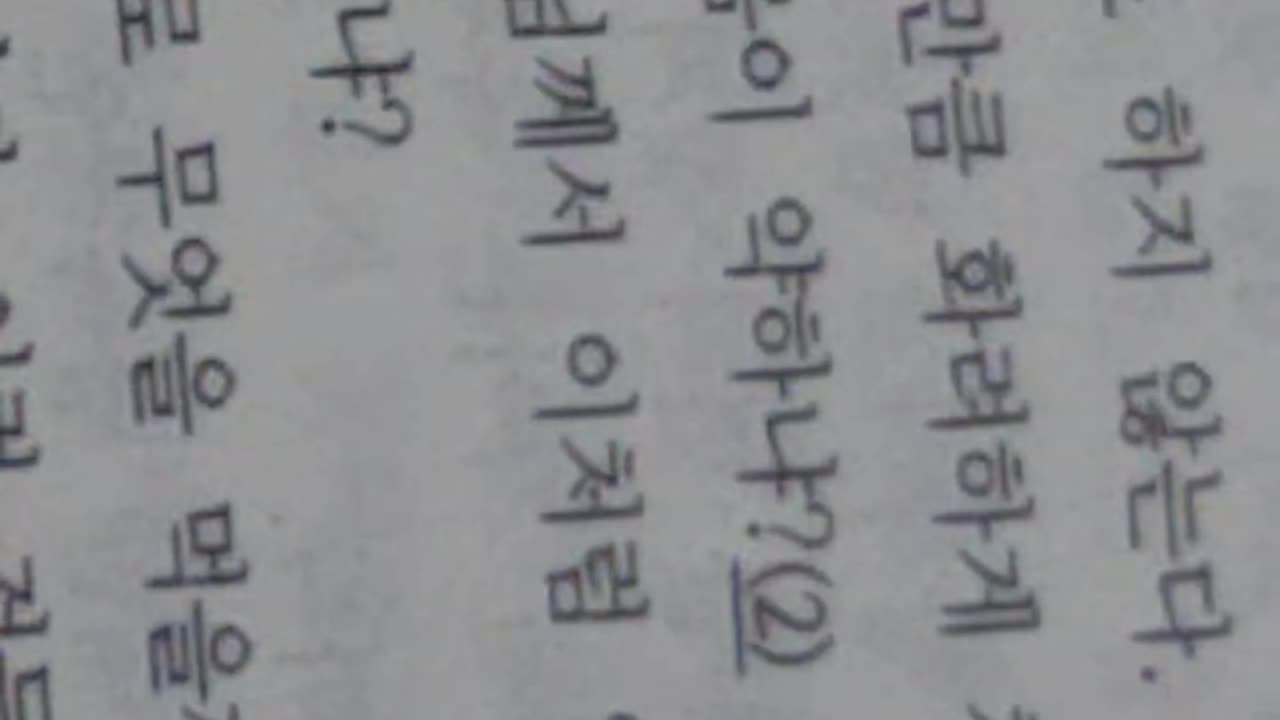 하지 않는다.
만큼 화려하게
이 약하냐?(2)
님께서 이처럼
냐?
로 무엇을 먹을